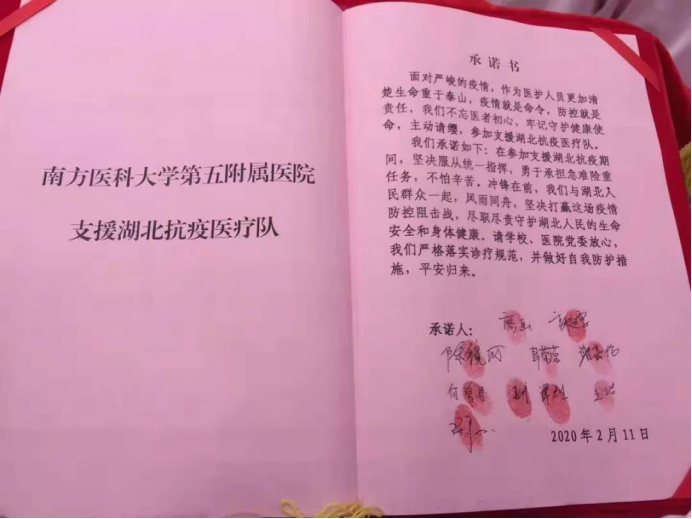 南方医科大学第五附属医院
支援湖北抗疫医疗队
承诺书
面对严峻的疫情，作为医护人员更加清
楚生命重于泰山，疫情就是命令，防控就是
责任，我们不忘医者初心，牢记守护健康使
命，主动请缨，参加支援湖北抗疫医疗队。
我们承诺如下：在参加支援湖北抗疫期
间，坚决服从统一指挥，勇于承担急难险重
任务，不怕辛苦、冲锋在前，我们与湖北人
民群众一起，风雨同舟，坚决打赢这场疫情
防控阻击战，尽职尽责守护湖北人民的生命
安全和身体健康。请学校、医院党委放心，
我们严格落实诊疗规范，并做好自我防护措
施，平安归来。
承诺人：
2020年2月11日